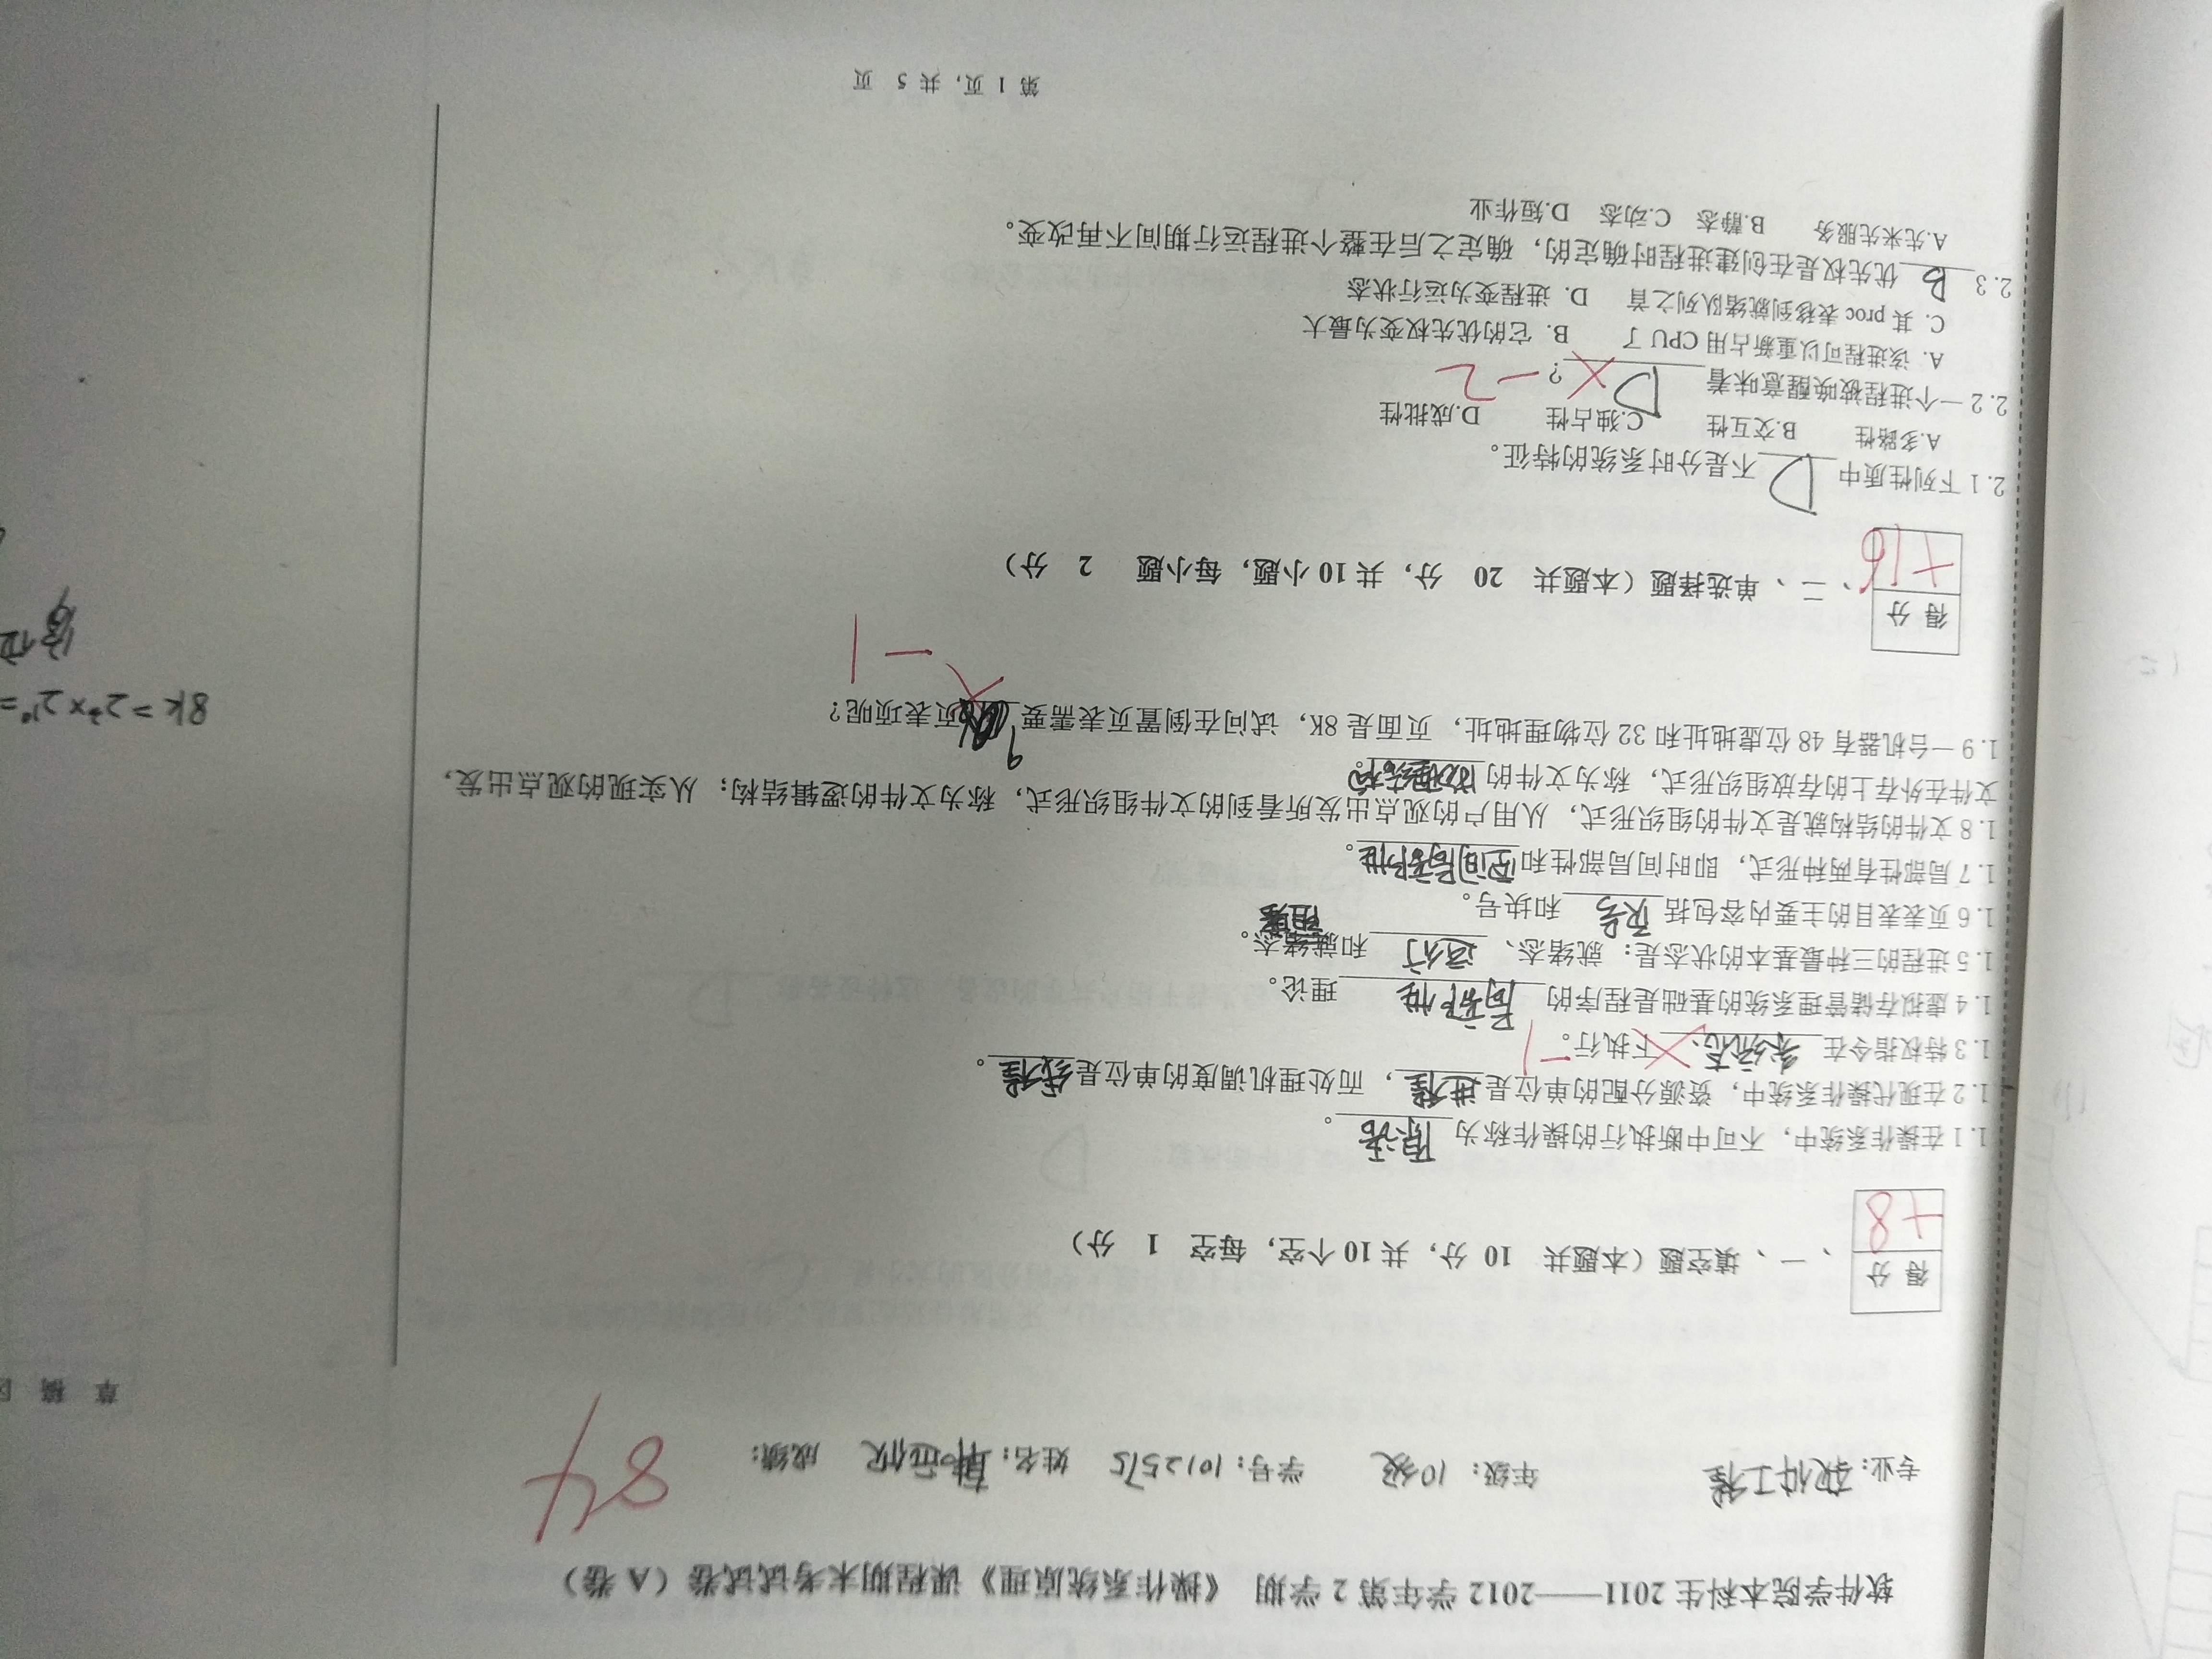 软件学院本科生 2011——2012 学年第 2 学期 《操作系统原理》课程期末考试试卷（A 卷）
专业：软件工程 年级：10级 学号：1012575 姓名：韩远欣 成绩：84
草 稿
得 分
+8
、一 、填空题（本题共 10 分，共 10 个空，每空 1 分）
1.1 在操作系统中，不可中断执行的操作称为原语。
1.2 在现代操作系统中，资源分配的单位是进程，而处理机调度的单位是线程。
1.3 特权指令在系统态下执行。-1
1.4 虚拟存储管理系统的基础是程序的局部性理论。
1.5 进程的三种最基本的状态是：就绪态、运行和就绪态。
阻塞
1.6 页表表目的主要内容包括页号和块号。
1.7 局部性有两种形式，即时间局部性和空间局部性。
1.8 文件的结构就是文件的组织形式，从用户的观点出发所看到的文件组织形式，称为文件的逻辑结构；从实现的观点出发，
文件在外存上的存放组织形式，称为文件的物理结构。
1.9 一台机器有 48 位虚地址和 32 位物理地址，页面是 8K，试问在倒置页表需要9页表项呢？
-1
8k = 2³×2¹⁰=
位
得 分
+16
、二 、单选择题（本题共 20 分，共 10 小题，每小题 2 分）
2.1 下列性质中D不是分时系统的特征。
A.多路性 B.交互性 C.独占性 D.成批性
2.2 一个进程被唤醒意味着D×？-2
A. 该进程可以重新占用 CPU 了 B. 它的优先权变为最大
C. 其 proc 表移到就绪队列之首 D. 进程变为运行状态
2.3B优先权是在创建进程时确定的，确定之后在整个进程运行期间不再改变。
A.先来先服务 B.静态 C.动态 D.短作业
第 1 页，共 5 页